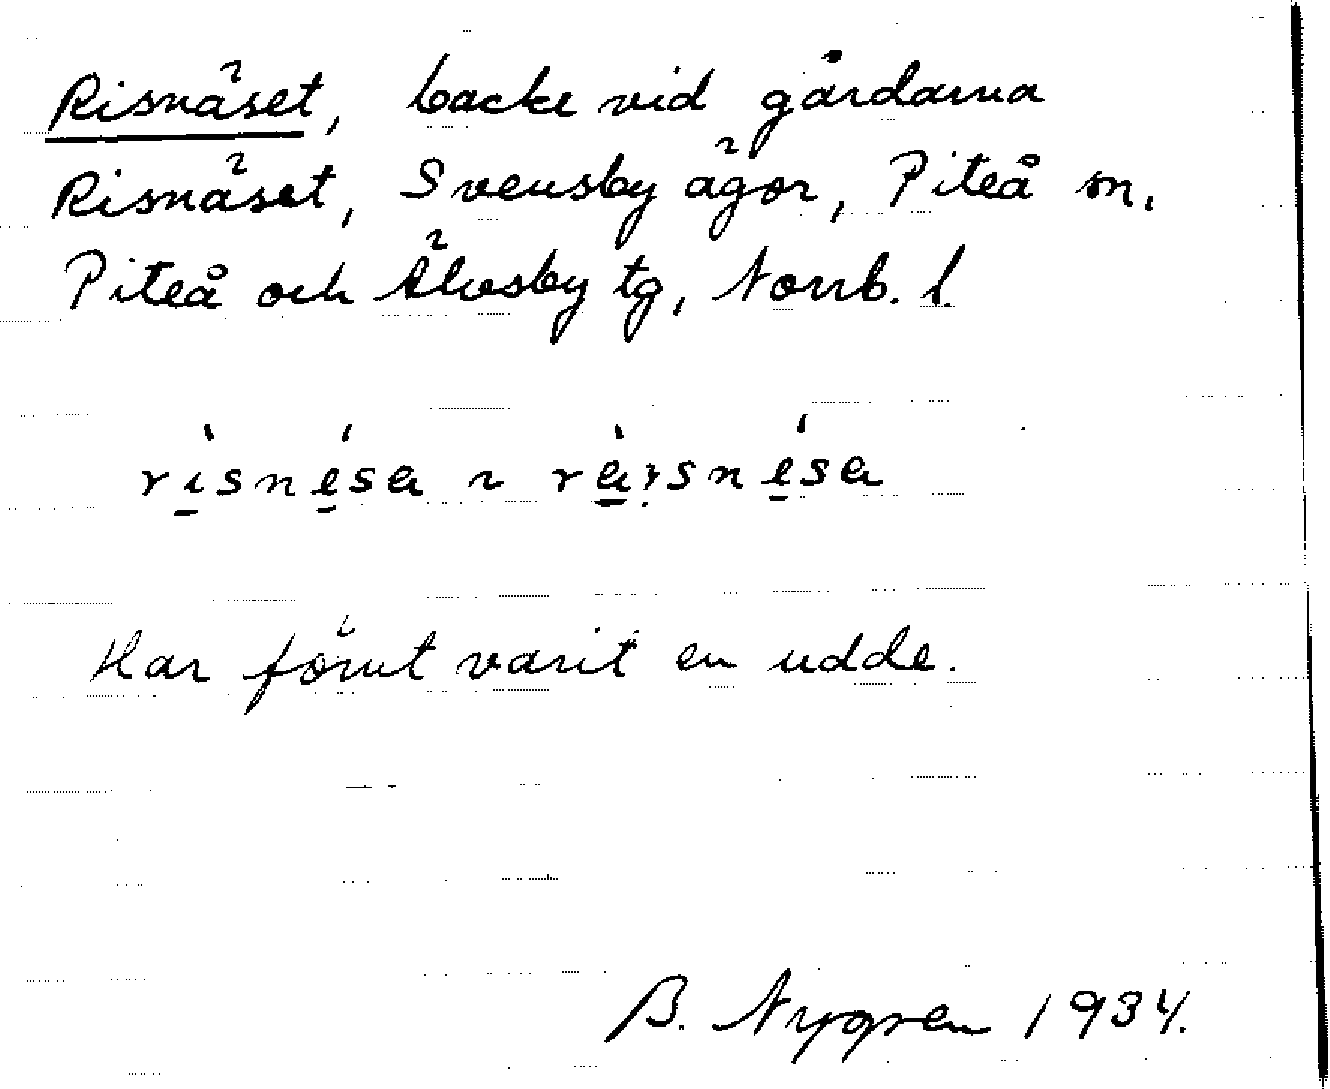 Risnäset, backe vid gårdarna
Risnäset, Svensby ägor, Piteå sn,
Piteå och Älvsby tg, Norrb. l.
rìsnésa ~ rèi̯snésa
Har förut varit en udde.
B. Nygren 1934.